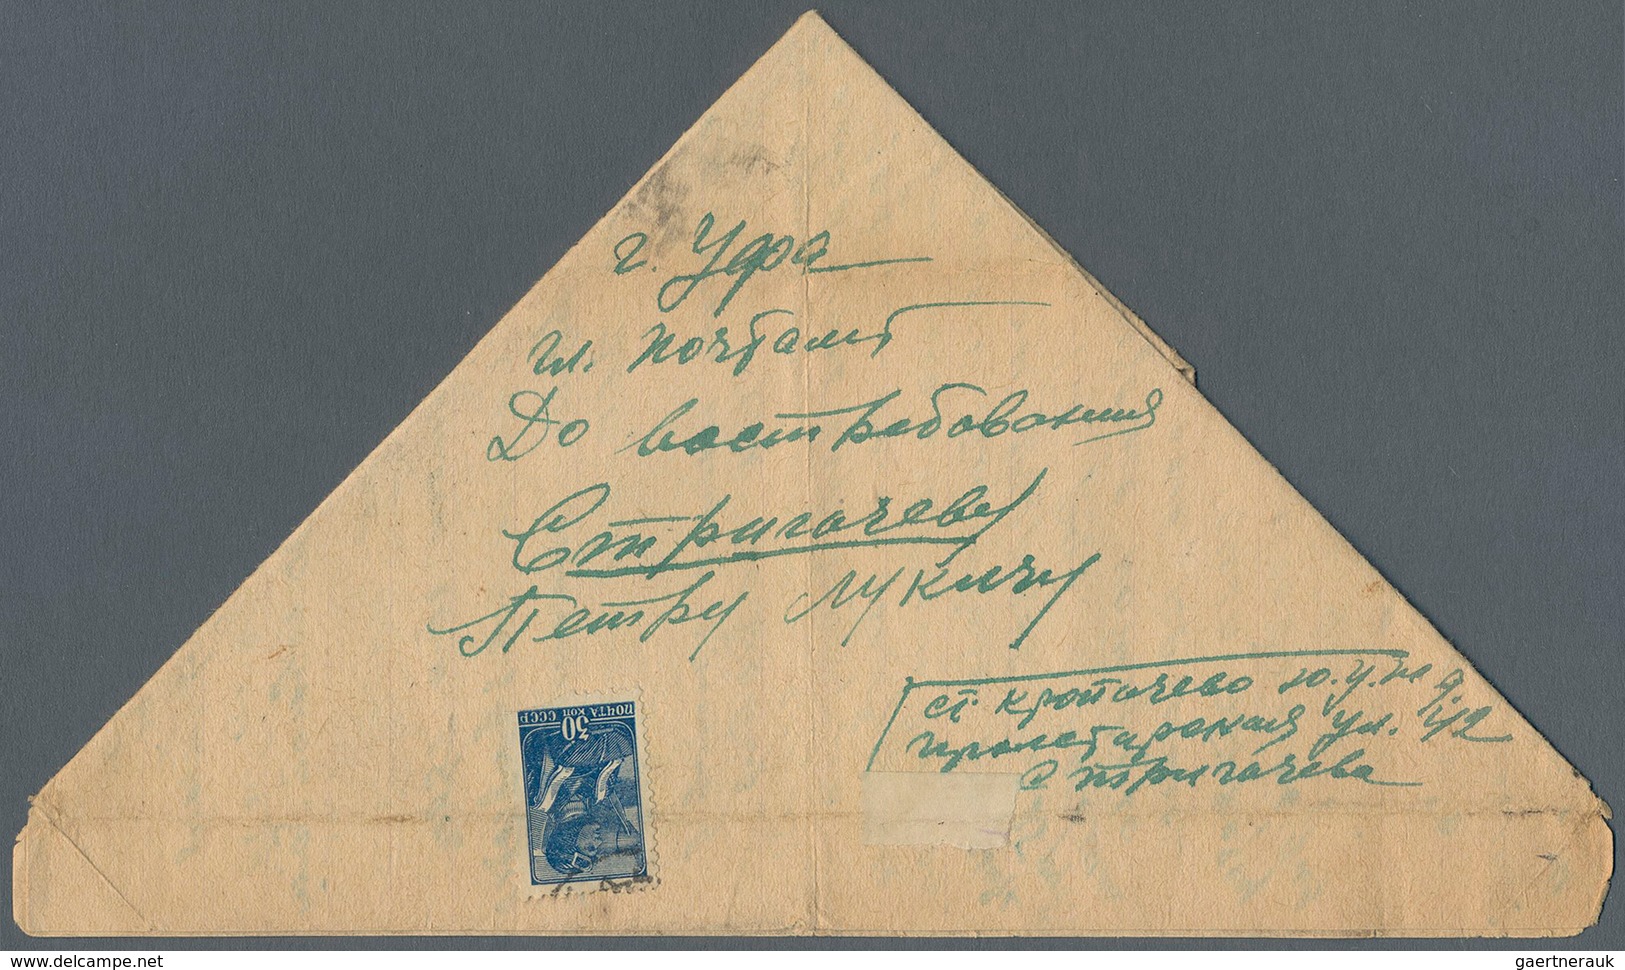 г. Уфа
гл. почтамт
До востребования
Стригачеву
Петру Лукичу
ст. Кропачево Ю.У.ж.д.
Пролетарская ул. 42
Стригачева
ПОЧТА 30 КОП СССР
www.delcampe.net
gaertnerauk